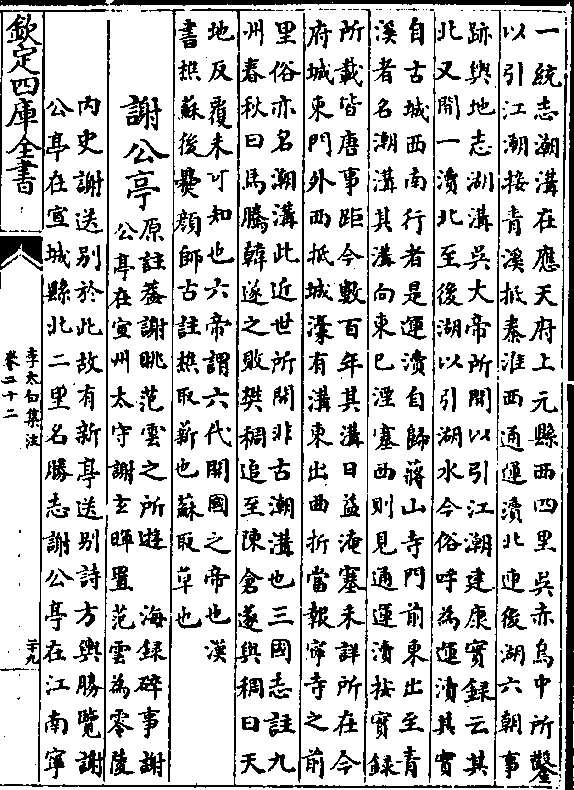 一統志潮溝在應天府上元縣西四里吳赤烏中所鑿
以引江潮接青溪抵秦淮西通運瀆北連後湖六朝事
跡與地志潮溝吳大帝所開以引江潮建康實録云其
北又開一瀆北至後湖以引湖水今俗呼為運瀆其實
自古城西南行者是運瀆自歸蔣山寺門前東出至青
溪者名潮溝其溝向東已湮塞西則見通運瀆按實録
所載皆唐事距今數百年其溝日益淹塞未詳所在今
府城東門外西抵城濠有溝東出曲折當報寧寺之前
里俗亦名潮溝此近世所開非古潮溝也三國志註九
州春秋曰馬騰韓遂之敗樊稠追至陳倉遂與稠曰天
地反覆未可知也六帝謂六代開國之帝也漢
書樵蘇後爨顔師古註樵取薪也蘇取草也
謝公亭
原註葢謝朓范雲之所遊
海録碎事謝
公亭在宣州太守謝玄暉置范雲為零陵
内史謝送别於此故有新亭送别詩方輿勝覽謝
公亭在宣城縣北二里名勝志謝公亭在江南寧
欽定四庫全書
李太白集注
卷二十二
二十九